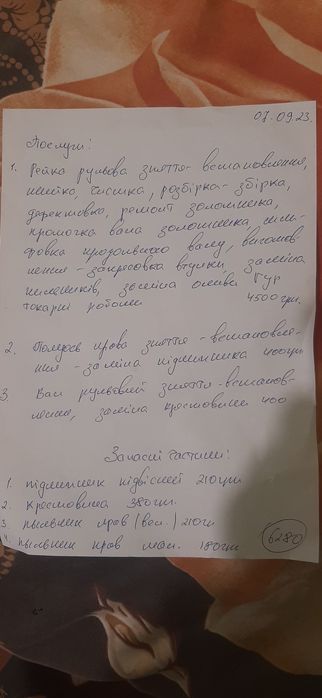 07.09.23.
Послуги:
1. Рейка рульова зняття - встановлення,
мийка, чистка, розбірка - збірка,
дефектовка, ремонт золотника,
проточка вала золотника, шлі-
фовка продольного валу, виготов-
лення - запресовка втулки, заміна
пильників, заміна оливи ГУР
токарні роботи 4500 грн.
2. Полуось права зняття - встановле-
ння - заміна підшипника 400грн
3 Вал рульовий зняття - встанов-
лення, заміна крестовини 400
Запасні частини:
1. підшипник підвісний 210грн
2. Крестовина 380грн.
3. пыльник прав (вел.) 210г
4. пыльник прав мал. 180грн
6280